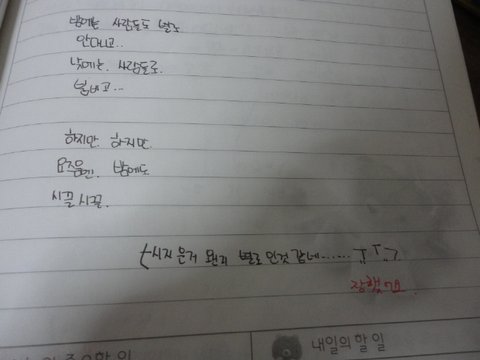 밤에는 사람들도 별로
안다니고..
낮에는 사람들로
붐비고...
하지만 하지만
요즈음엔 밤에도
시끌시끌
시지은거 왠지 별로인것 같네......ㅠㅜㄱ
잘했어요
내일의 할 일